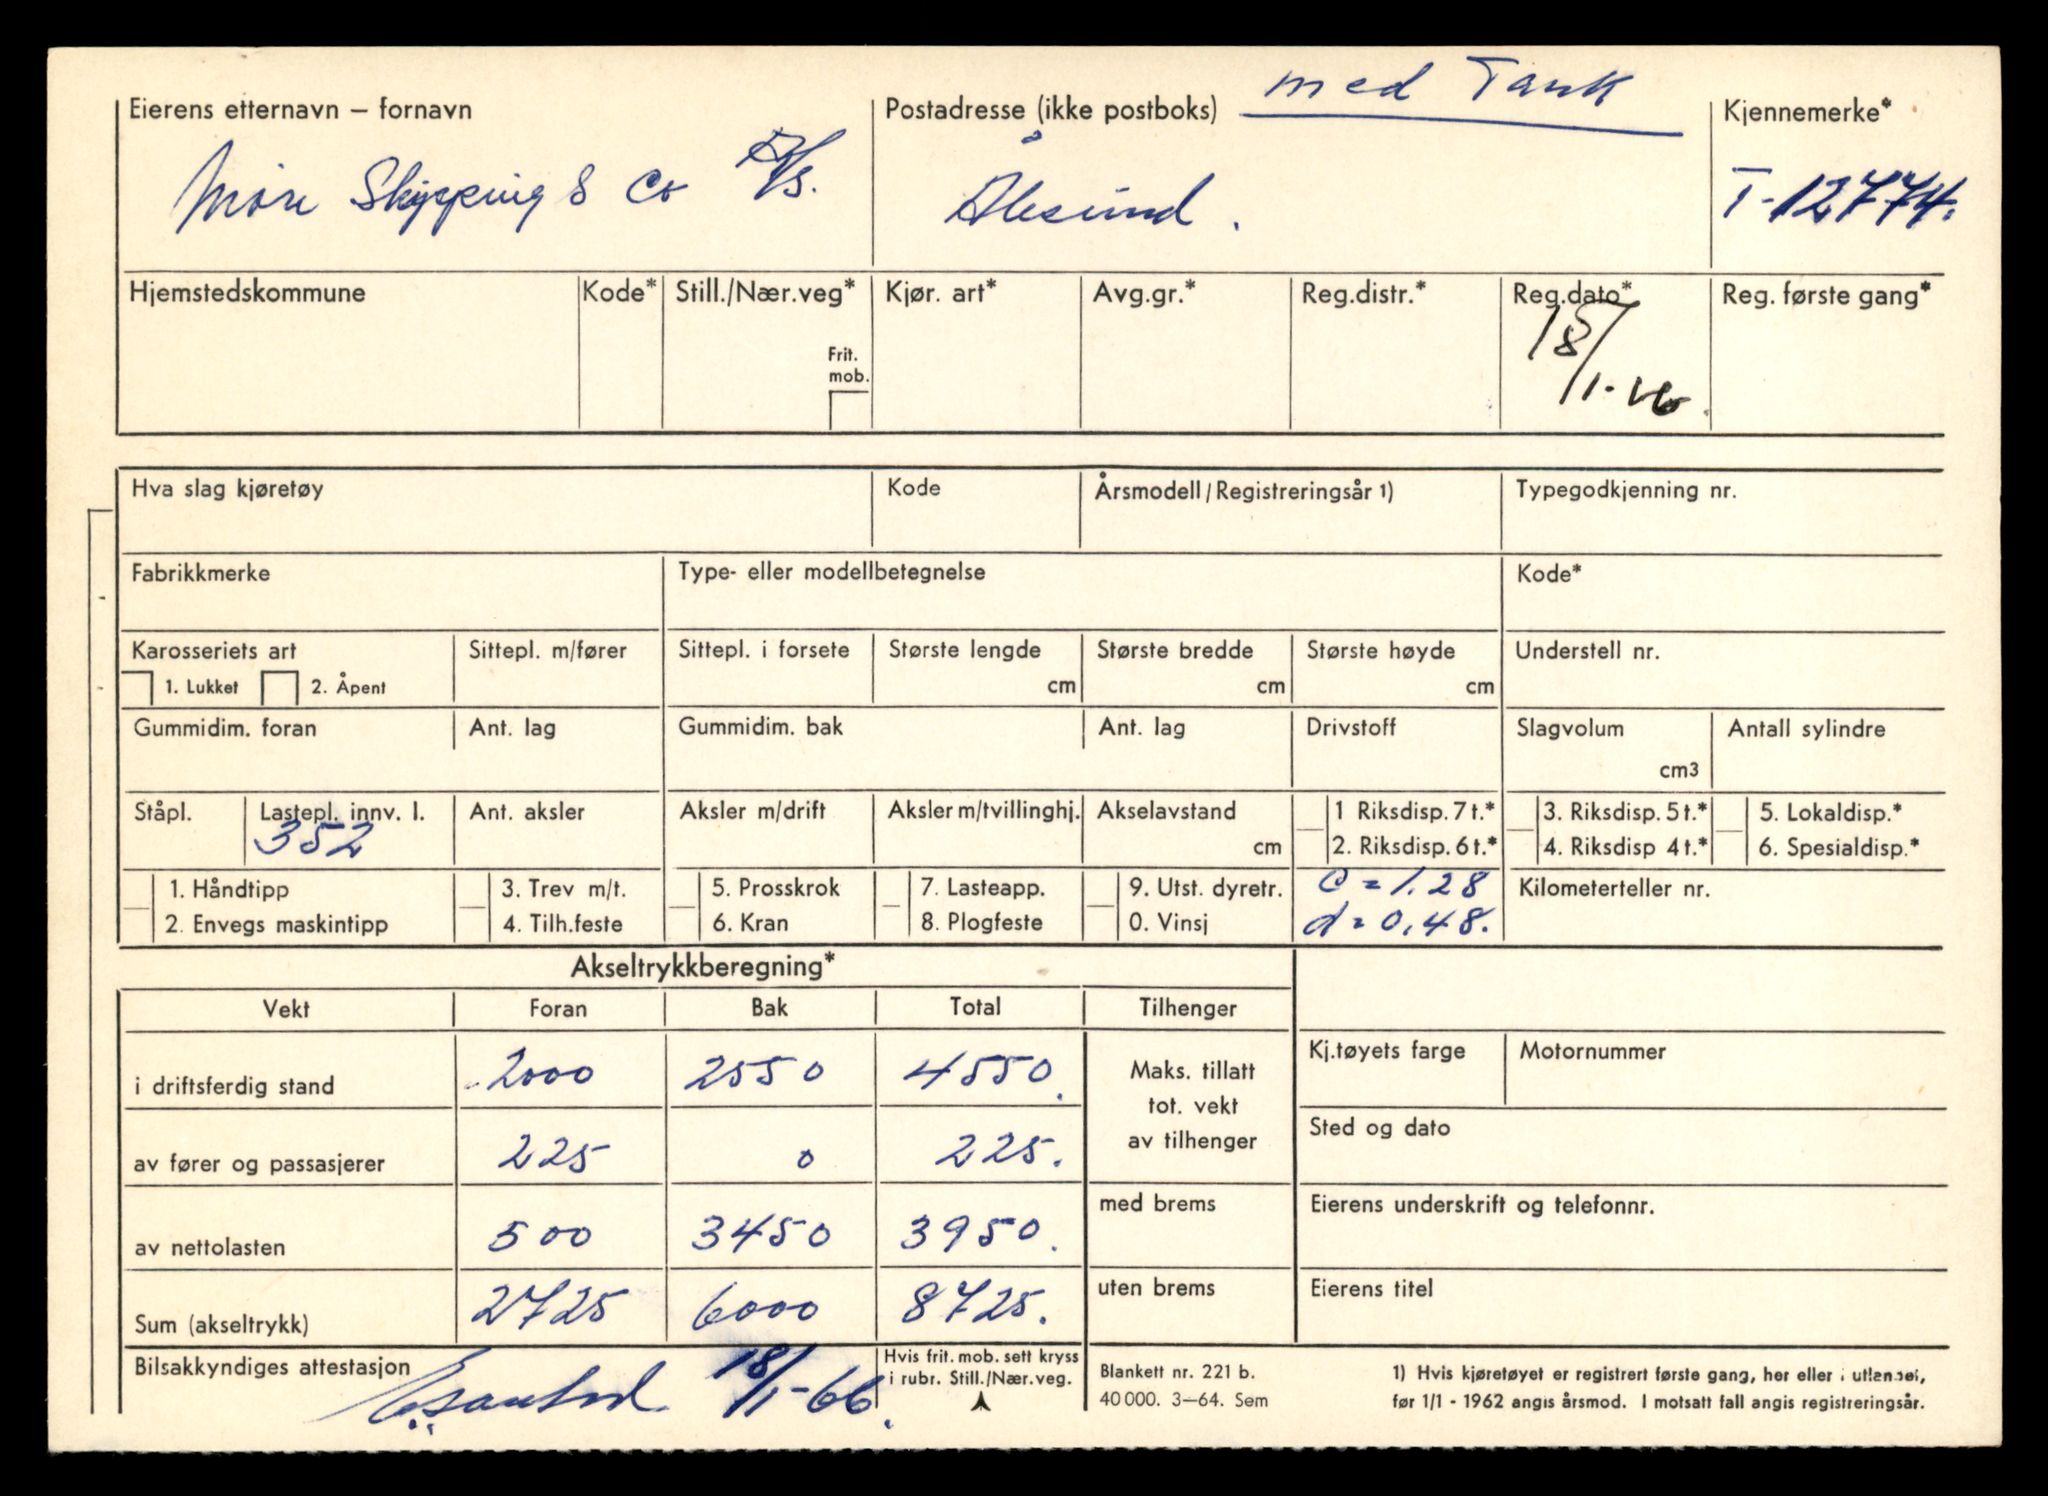 med Tank
Eierens etternavn – fornavn Postadresse (ikke postboks) Kjennemerke*
Møre Skipping & Co A/S. Ålesund. T-12774.
Hjemstedskommune Kode* Still./Nær.veg* Kjør. art* Avg.gr.* Reg.distr.* Reg.dato* Reg. første gang*
18/1-
Frit.
mob.
Hva slag kjøretøy Kode Årsmodell/Registreringsår 1) Typegodkjenning nr.
Fabrikkmerke Type- eller modellbetegnelse Kode*
Karosseriets art Sittepl. m/fører Sittepl. i forsete Største lengde Største bredde Største høyde Understell nr.
1. Lukket 2. Åpent cm cm cm
Gummidim. foran Ant. lag Gummidim. bak Ant. lag Drivstoff Slagvolum Antall sylindre
cm3
Ståpl. Lastepl. innv. l. Ant. aksler Aksler m/drift Aksler m/tvillinghj. Akselavstand 1 Riksdisp. 7 t.* 3. Riksdisp. 5 t.* 5. Lokaldisp.*
352 cm 2. Riksdisp. 6 t.* 4. Riksdisp 4 t.* 6. Spesialdisp.*
1. Håndtipp 3. Trev m/t. 5. Prosskrok 7. Lasteapp. 9. Utst. dyretr. c = 1.28 Kilometerteller nr.
2. Envegs maskintipp 4. Tilh.feste 6. Kran 8. Plogfeste 0. Vinsj d = 0,48.
Akseltrykkberegning*
Vekt Foran Bak Total Tilhenger
i driftsferdig stand 2000 2550 4550. Maks. tillatt Kj.tøyets farge Motornummer
tot. vekt
av fører og passasjerer 225 0 225. av tilhenger Sted og dato
av nettolasten 500 3450 3950. med brems Eierens underskrift og telefonnr.
Sum (akseltrykk) 2725 6000 8725. uten brems Eierens titel
Bilsakkyndiges attestasjon 18/1-66. Hvis frit. mob. sett kryss Blankett nr. 221 b. 1) Hvis kjøretøyet er registrert første gang, her eller i utlandet,
i rubr. Still./Nær.veg. 40 000. 3–64. Sem før 1/1 - 1962 angis årsmod. I motsatt fall angis registreringsår.